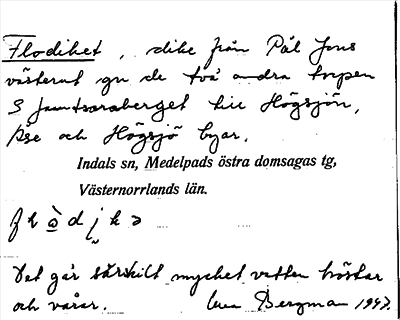 Flodiket, dike från Pål Jons
västerut gn de två andra torpen
S Jämtsvarsberget till Högsjön,
Åse och Högsjö byar.
Indals sn, Medelpads östra domsagas tg,
Västernorrlands län.
Det går särskilt mycket vatten höstar
och vårar. Bergman 1947.